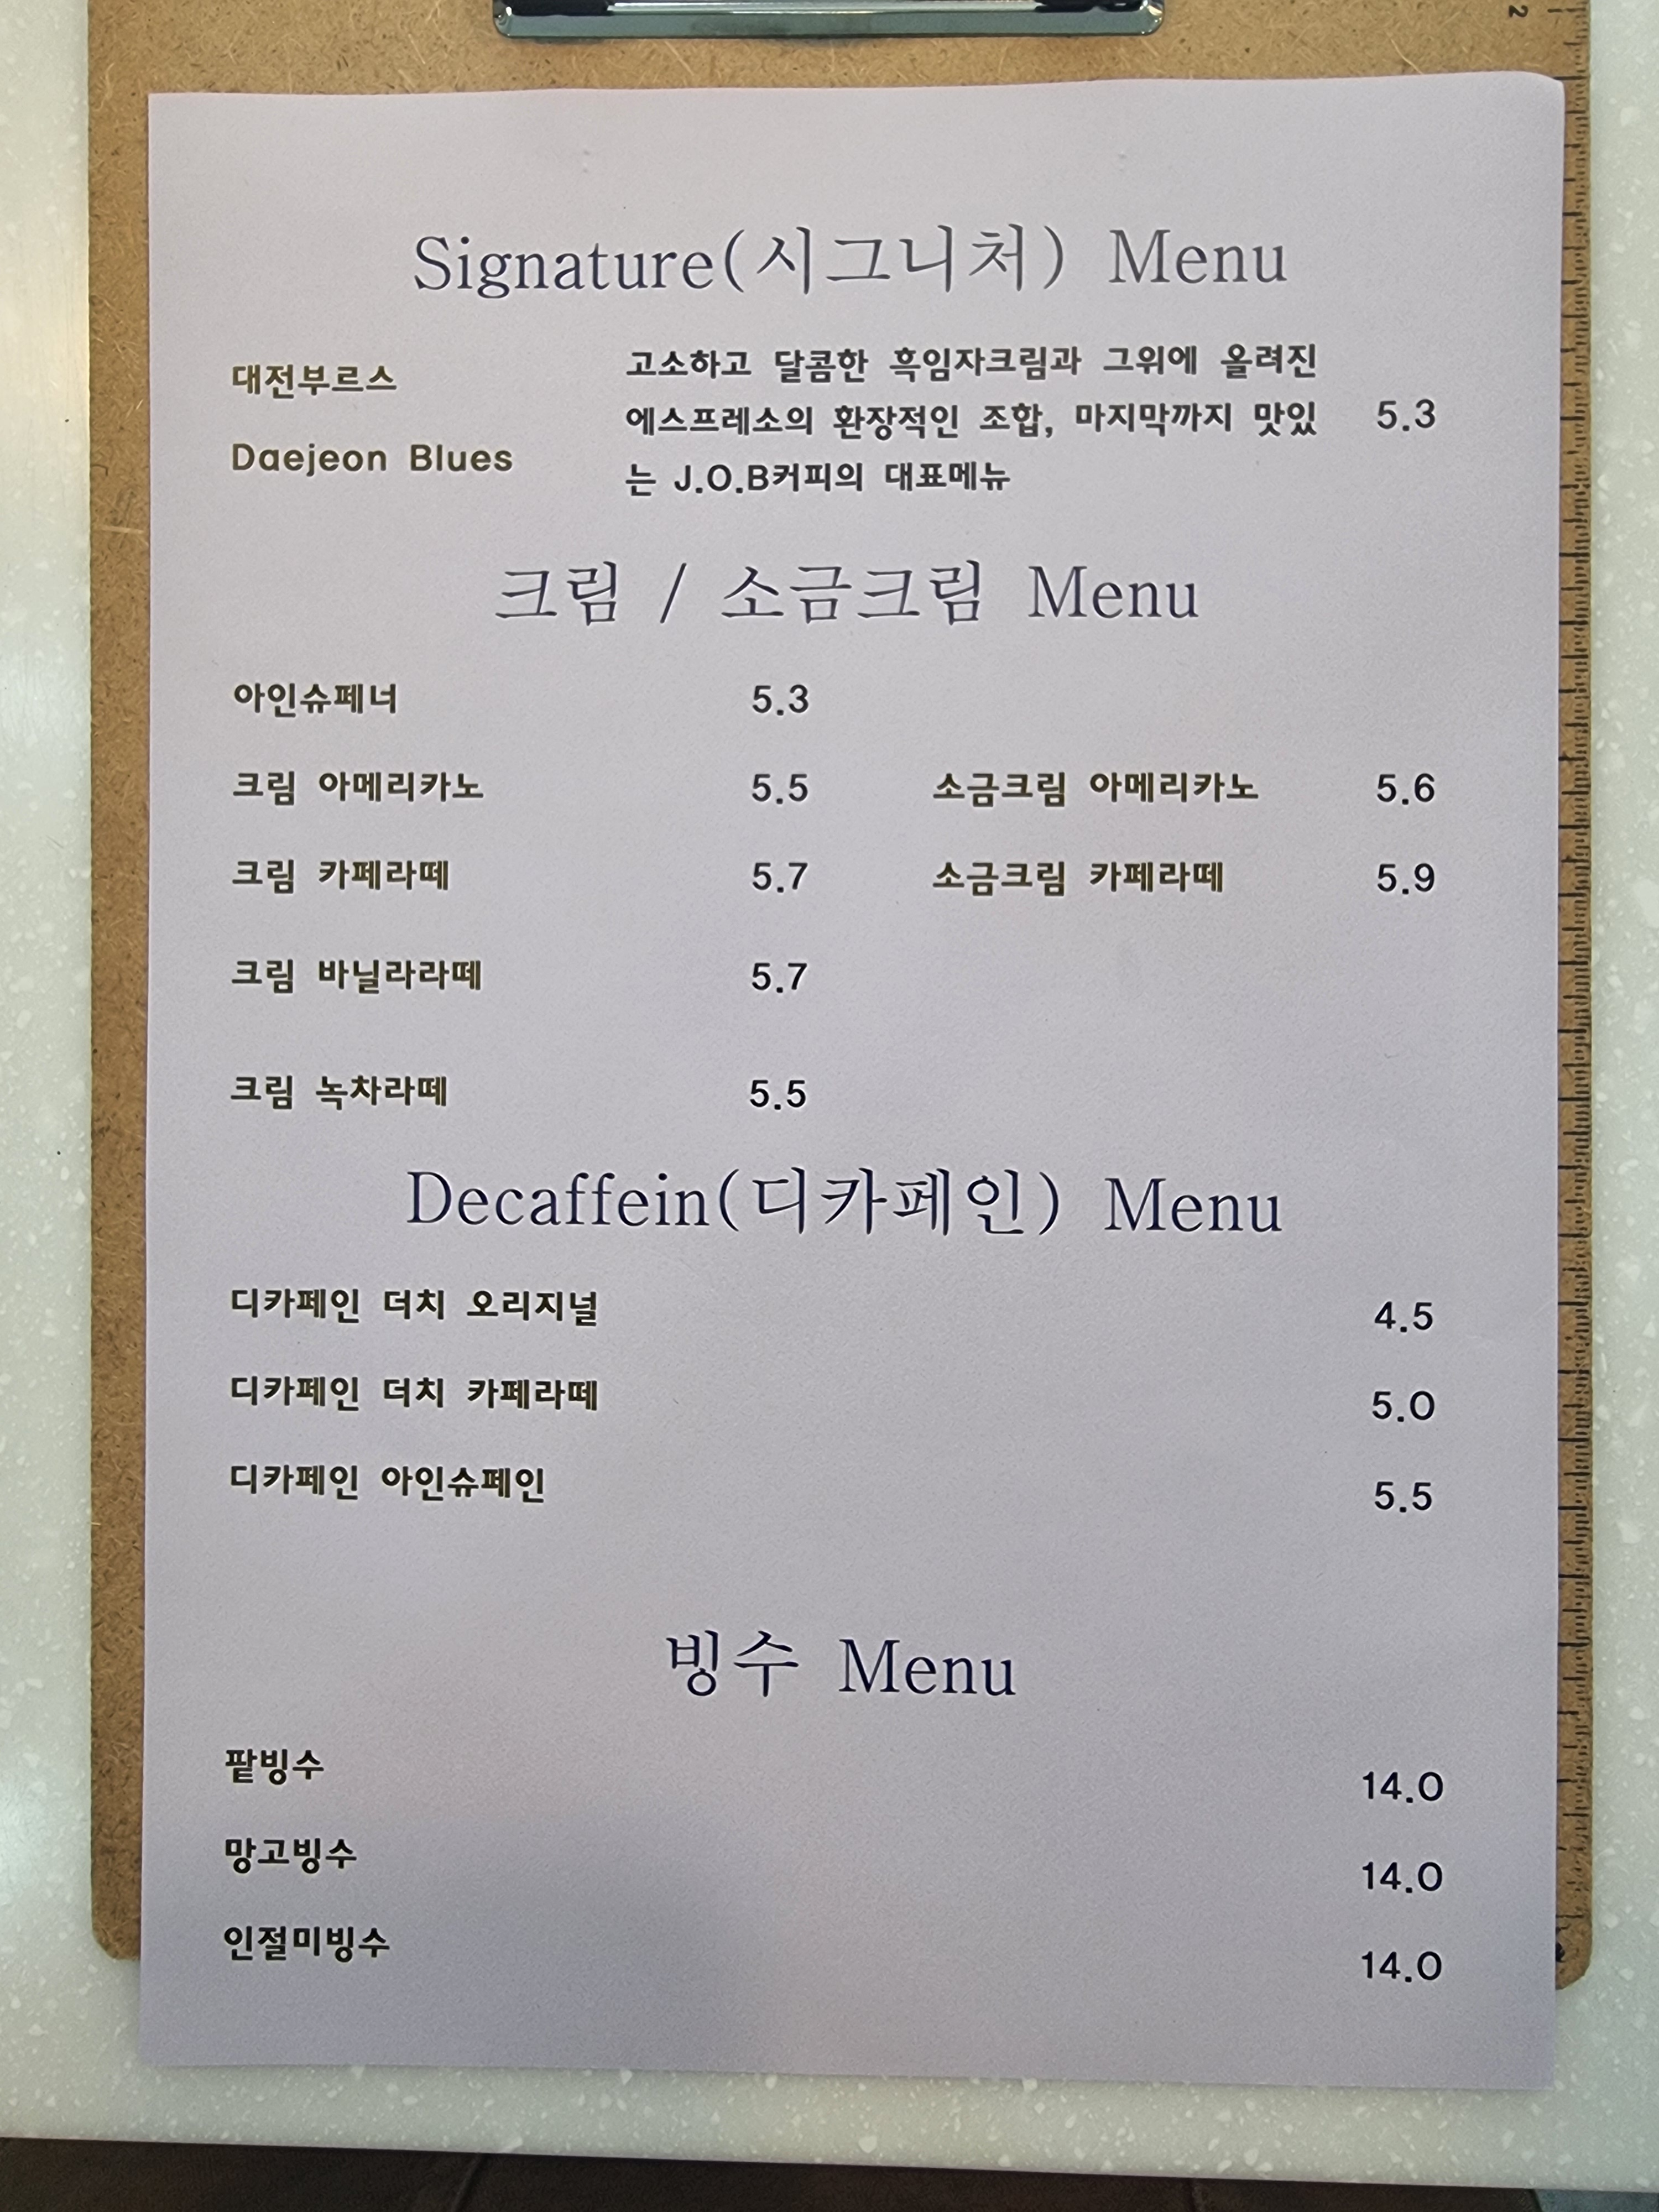 2
Signature(시그니처) Menu
대전부르스
Daejeon Blues
고소하고 달콤한 흑임자크림과 그위에 올려진
에스프레소의 환장적인 조합, 마지막까지 맛있
는 J.O.B커피의 대표메뉴
5.3
크림 / 소금크림 Menu
아인슈페너 5.3
크림 아메리카노 5.5 소금크림 아메리카노 5.6
크림 카페라떼 5.7 소금크림 카페라떼 5.9
크림 바닐라라떼 5.7
크림 녹차라떼 5.5
Decaffein(디카페인) Menu
디카페인 더치 오리지널 4.5
디카페인 더치 카페라떼 5.0
디카페인 아인슈페인 5.5
빙수 Menu
팥빙수 14.0
망고빙수 14.0
인절미빙수 14.0